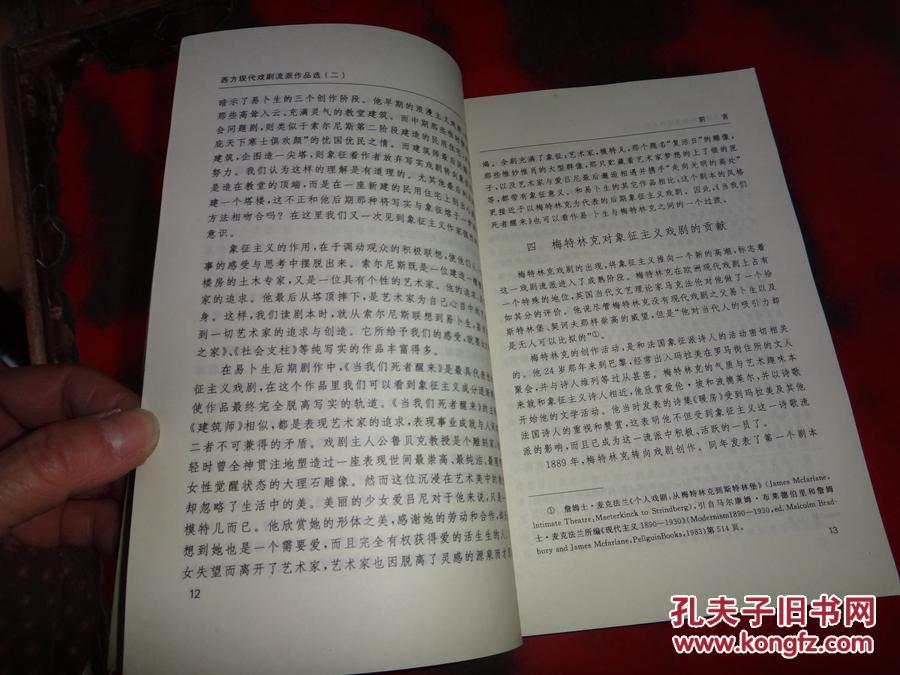 西方现代戏剧流派作品选（二）
暗示了易卜生的三个创作阶段。他早期的浪漫主义戏剧
那些高耸入云、充满灵气的教堂建筑。而中期那些
会问题剧，则类似于索尔尼斯第二阶段建造的民用住宅
庇天下寒士俱欢颜"的忧国忧民之情。而建筑师最后
建筑，企图造一尖塔，则象征着作者放弃写实戏剧转向
努力。我们认为这样的理解是有道理的。尤其他最后
是造在教堂的顶端，而是在一座新建的民用住宅上
建一个塔楼，这不正和他后期那种将写实与象征熔于一炉
方法相吻合吗？在这里我们又一次见到象征主义作家
意识。
象征主义的作用，在于调动观众的积极联想，使他们从
事的感受与思考中摆脱出来。索尔尼斯既是一位建造
楼房的土木专家，又是一位具有个性的艺术家。他的追求，
家的追求。他最后从塔顶摔下，是艺术家为自己心目中
身。这样，我们读剧本时，就从索尔尼斯联想到易卜生，
到一切艺术家的追求与创造。它所给予我们的感受，就要比
之家》、《社会支柱》等纯写实的作品丰富得多。
在易卜生后期剧作中，《当我们死者醒来》是最具代表
征主义戏剧，在这个作品里我们可以看到象征主义成分逐渐
使作品最终完全脱离写实的轨道。《当我们死者醒来》的主
《建筑师》相似，都是表现艺术家的追求，表现事业成就与人
二者不可兼得的矛盾。戏剧主人公鲁贝克教授是个雕刻
轻时曾全神贯注地塑造过一座表现世间最崇高、最纯洁、最理
女性觉醒状态的大理石雕像。然而这位沉浸在艺术美中的
却忽略了生活中的美。美丽的少女爱吕尼对于他来说，只
模特儿而已。他欣赏她的形体之美，感谢她的劳动和合作，却
想到她也是一个需要爱，而且完全有权获得爱的活生生的人
女失望而离开了艺术家，艺术家也因脱离了灵感的源泉而才
12
前 言
竭。全剧充满了象征：艺术家、模特儿，那个题名"复活日"的雕像，
那些惟妙惟肖的大型群像，那只贮藏着艺术家梦想的上了锁的匣
子，以及艺术家与爱吕尼最后邂逅相遇并携手"走向光明的高处"
等，都带有象征意义。和易卜生的其它作品相比，这个剧本的风格
更接近于以梅特林克为代表的后期象征主义戏剧。因此，《当我们
死者醒来》也可以看作易卜生与梅特林克之间的一个过渡。
四 梅特林克对象征主义戏剧的贡献
梅特林克戏剧的出现，将象征主义推向一个新的高潮，标志着
这一戏剧流派进入了成熟阶段。梅特林克在欧洲现代戏剧上占有
一个特殊的地位，英国当代文艺理论家马克法伦对他做了一个恰
如其分的评价。他说尽管梅特林克没有现代戏剧之父易卜生以及
斯特林堡、契诃夫那样崇高的威望，但是"他对当代人的吸引力却
是无人可以比拟的"①。
梅特林克的创作活动，是和法国象征派诗人的活动密切相关
的。他24岁那年来到巴黎，经常出入玛拉美在罗马街住所的文人
聚会，并与诗人维列等过从甚密。梅特林克的气质与艺术趣味本
来就和象征主义诗人相近，他欣赏爱伦·坡和波德莱尔，并以诗歌
开始他的文学活动。他当时发表的诗集《暖房》受到玛拉美及其他
法国诗人的重视和赞赏，这表明他不但受到象征主义这一诗歌流
派的影响，而且已成为这一流派中积极、活跃的一员了。
1889年，梅特林克转向戏剧创作。同年发表了第一个剧本
① 詹姆士·麦克法兰《个人戏剧：从梅特林克到斯特林堡》（James Mcfarlane,
Intimate Theatre: Maeterkinck to Strindberg），引自马尔康姆·布莱德伯里和詹姆
士·麦克法兰所编《现代主义1890—1930》（Modernism1890—1930,ed. Malcolm Brad-
bury and James Mcfarlane, PellguinBooks, 1983）第514页。
13
孔夫子旧书网
www.kongfz.com